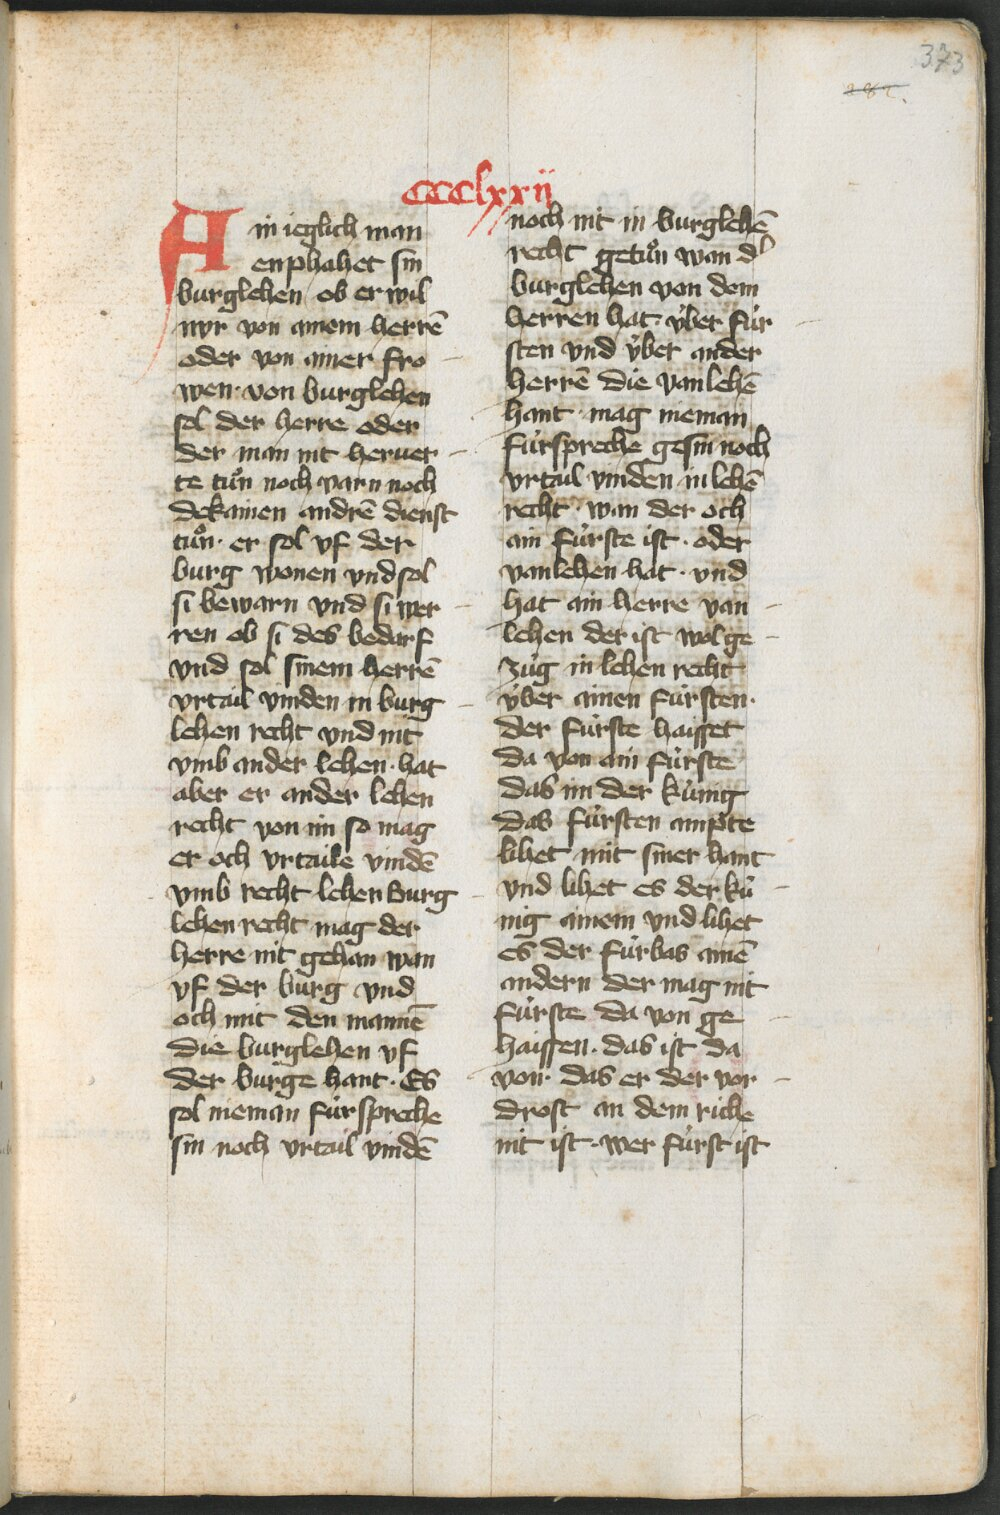 373
282.
CCCClxxij
Ain ieglich man
enphahet sin
burglehen ob er wil
nvr von ainem herrē
oder von ainer fro
wen· von burglehen
sol der herre oder
der man nit heruer
te tůn noch varn noch
dekainen andrē dienst
tůn· er sol vf der
burg wonen vnd sol
si bewarn vnd si wer
ren ob si des bedarf
vnd sol sinem herrē
vrtail vinden in burg
lehen recht vnd nit
vmb ander lehen· hat
aber er ander lehen
recht von im so mag
er och vrtaile vindē
vmb recht lehen Burg
lehen recht mag der
herre nit gehan wan
vf der burg vnd
och mit den mannē
die burglehen vf
der burge hant· Es
sol nieman fürspreche
sin noch vrtail vindē
noch nit in burglehē
recht getůn wan d᾽
burglehen von dem
herren hat· v́ber fúr
sten vnd v́ber ander
herrē die vanlehē
hant· mag nieman
fúrspreche gesin noch
vrtail vinden in lehē
recht· wan der och
ain fúrste ist· oder
vanlehen hat· vnd
hat ain herre van
lehen der ist wol ge
zúg in lehen recht
v́ber ainen fúrsten·
der fúrste haisset
da von ain fúrste
das im der kúnig
das fúrsten ampte
lihet mit siner hant
vnd lihet es der kú
nig ainem vnd lihet
es der fúrbas ainē
andern der mag nit
fúrste da von ge
haissen· das ist da
von· das er der vor
drost an dem riche
nit ist· wer fúrst ist